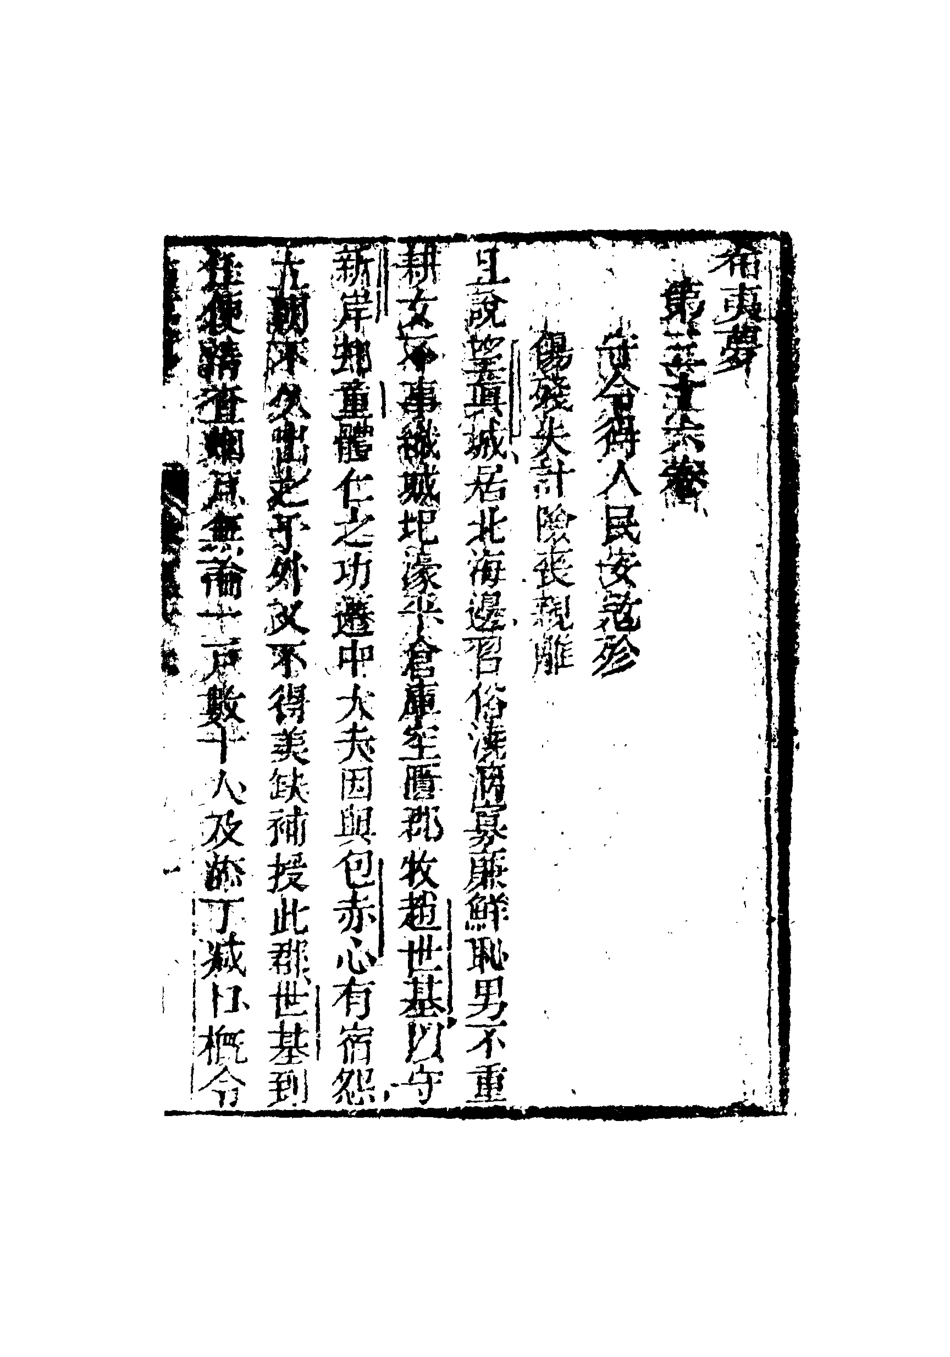 希夷夢
第三十六卷
守令得人民安冦殄
傷殘失計險喪親離
且說望眞城居北海邊習俗澆漓寡廉鮮恥男不重
耕女不事織城圯濠半倉庫空匱郡牧趙世基以守
新岸郷童體仁之功遷中大夫因與包赤心有宿怨
立朝不久出之于外又不得美缺補授此郡世基到
任便清查烟戸無論一戸數十人及添丁減口槪令